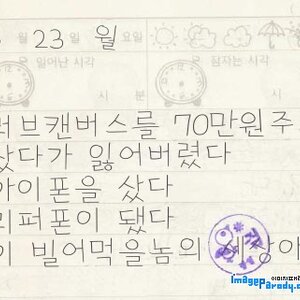 23 일 월 요일
일어난 시각 잠자는 시각
시 분 시 분
러브캔버스를 70만원주
샀다가 잃어버렸다
아이폰을 샀다
리퍼폰이 됐다
이 빌어먹을놈의 세상아
imageParody.com